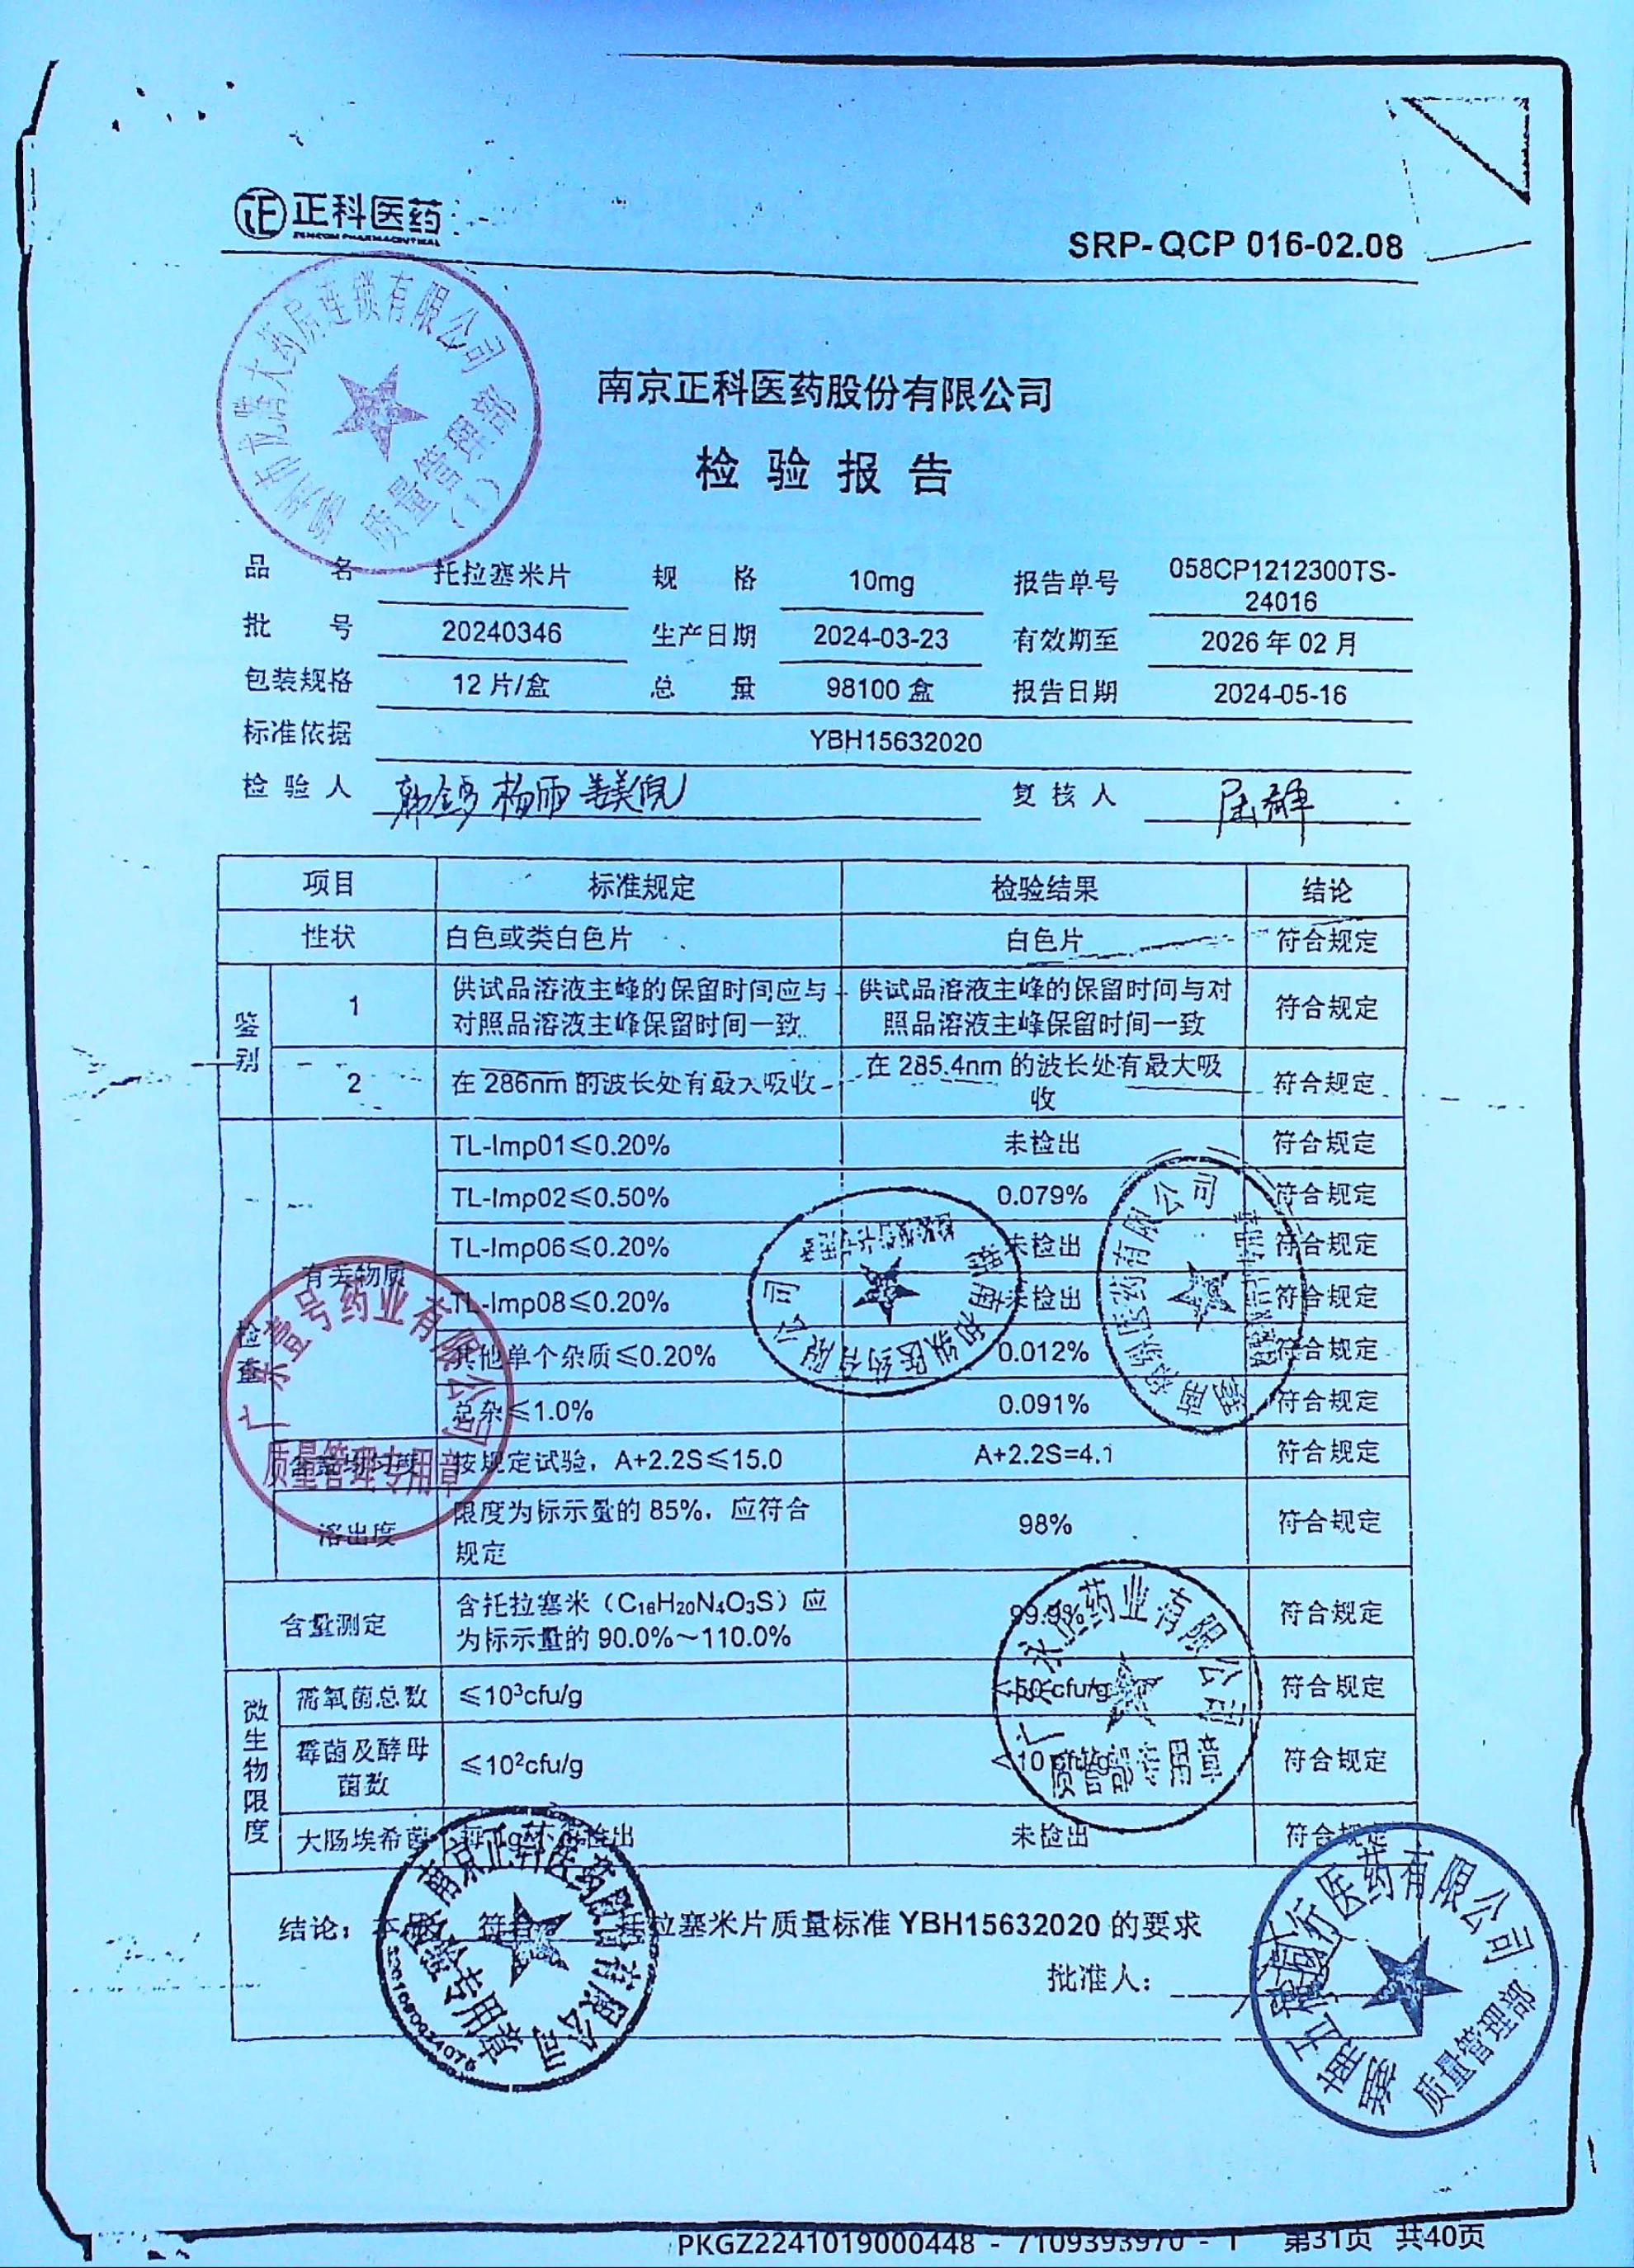 正科医药
ZENKOM PHARMACEUTICAL
SRP-QCP 016-02.08
南京正科医药股份有限公司
检验报告
品名 托拉塞米片 规格 10mg 报告单号 058CP1212300TS-
24016
批号 20240346 生产日期 2024-03-23 有效期至 2026年02月
包装规格 12片/盒 总量 98100盒 报告日期 2024-05-16
标准依据 YBH15632020
检验人 杨雨 复核人
项目 标准规定 检验结果 结论
性状 白色或类白色片 白色片 符合规定
鉴别
1 供试品溶液主峰的保留时间应与 供试品溶液主峰的保留时间与对 符合规定
对照品溶液主峰保留时间一致 照品溶液主峰保留时间一致
2 在286nm的波长处有最大吸收 在285.4nm的波长处有最大吸 符合规定
收
检查
有关物质
TL-Imp01≤0.20% 未检出 符合规定
TL-Imp02≤0.50% 0.079% 符合规定
TL-Imp06≤0.20% 未检出 符合规定
TL-Imp08≤0.20% 未检出 符合规定
其他单个杂质≤0.20% 0.012% 符合规定
总杂≤1.0% 0.091% 符合规定
按规定试验，A+2.2S≤15.0 A+2.2S=4.1 符合规定
溶出度 限度为标示量的85%，应符合 98% 符合规定
规定
含量测定 含托拉塞米（C₁₆H₂₀N₄O₃S）应 99.9% 符合规定
为标示量的90.0%～110.0%
微生物限度
需氧菌总数 ≤10³cfu/g <50 cfu/g 符合规定
霉菌及酵母 ≤10²cfu/g <10 cfu/g 符合规定
菌数
大肠埃希菌 未检出 符合规定
结论： 托拉塞米片质量标准YBH15632020的要求
批准人：
大药房连锁有限公司
质量管理部
(1)
广东壹号药业有限公司
质量管理专用章
医药有限公司
医药有限公司
药业有限公司
质管部专用章
南京正科医药股份有限公司
检验专用章
医药有限公司
质量管理部
PKGZ2241019000448 - 7109393970 - 1 第31页 共40页